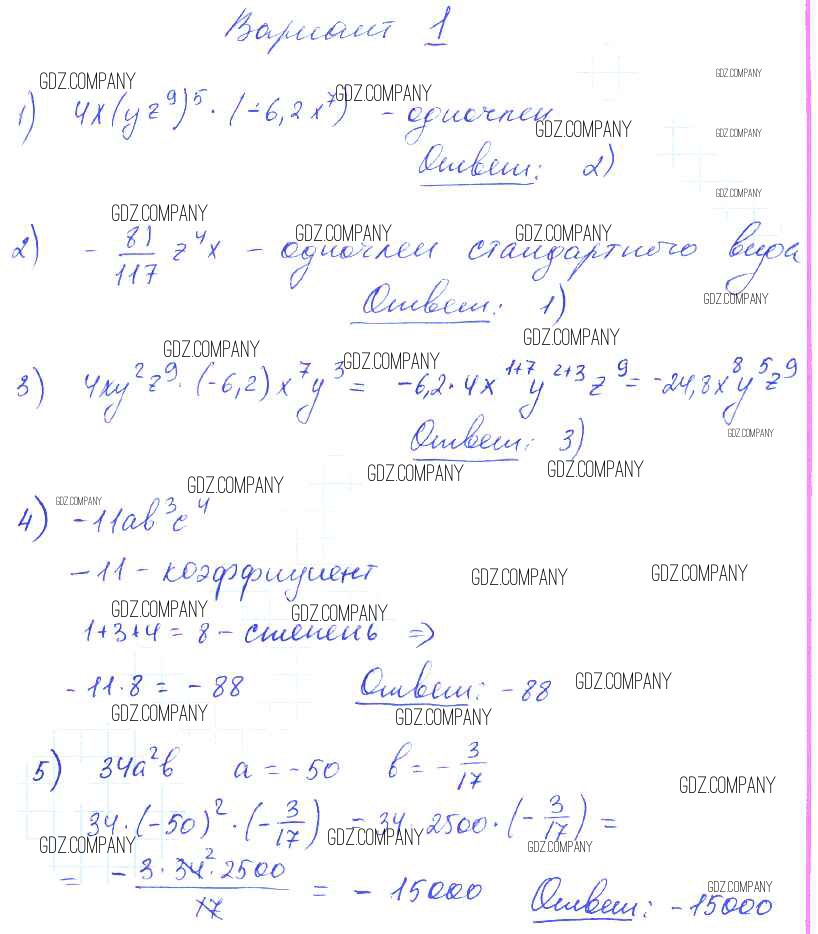 Вариант 1
GDZ.COMPANY GDZ.COMPANY GDZ.COMPANY
1) 4x(yz⁹)⁵ · (-6,2x⁷) - одночлен
GDZ.COMPANY GDZ.COMPANY
Ответ: 2)
GDZ.COMPANY
GDZ.COMPANY GDZ.COMPANY GDZ.COMPANY
2) - 81/117 z⁴x - одночлен стандартного вида
Ответ: 1) GDZ.COMPANY
GDZ.COMPANY GDZ.COMPANY GDZ.COMPANY
3) 4xy²z⁹ · (-6,2)x⁷y³ = -6,2 · 4x¹⁺⁷y²⁺³z⁹ = -24,8x⁸y⁵z⁹
Ответ: 3) GDZ.COMPANY
GDZ.COMPANY GDZ.COMPANY GDZ.COMPANY
GDZ.COMPANY
4) -11ab³c⁴
-11 - коэффициент GDZ.COMPANY GDZ.COMPANY
GDZ.COMPANY GDZ.COMPANY
1+3+4 = 8 - степень ⇒
-11·8 = -88 Ответ: -88 GDZ.COMPANY
GDZ.COMPANY GDZ.COMPANY
5) 34a²b a = -50 b = - 3/17
GDZ.COMPANY
34·(-50)²·(- 3/17) = 34·2500·(- 3/17) =
GDZ.COMPANY GDZ.COMPANY GDZ.COMPANY
= - 3·34²·2500/17 = -15000 Ответ: -15000
GDZ.COMPANY